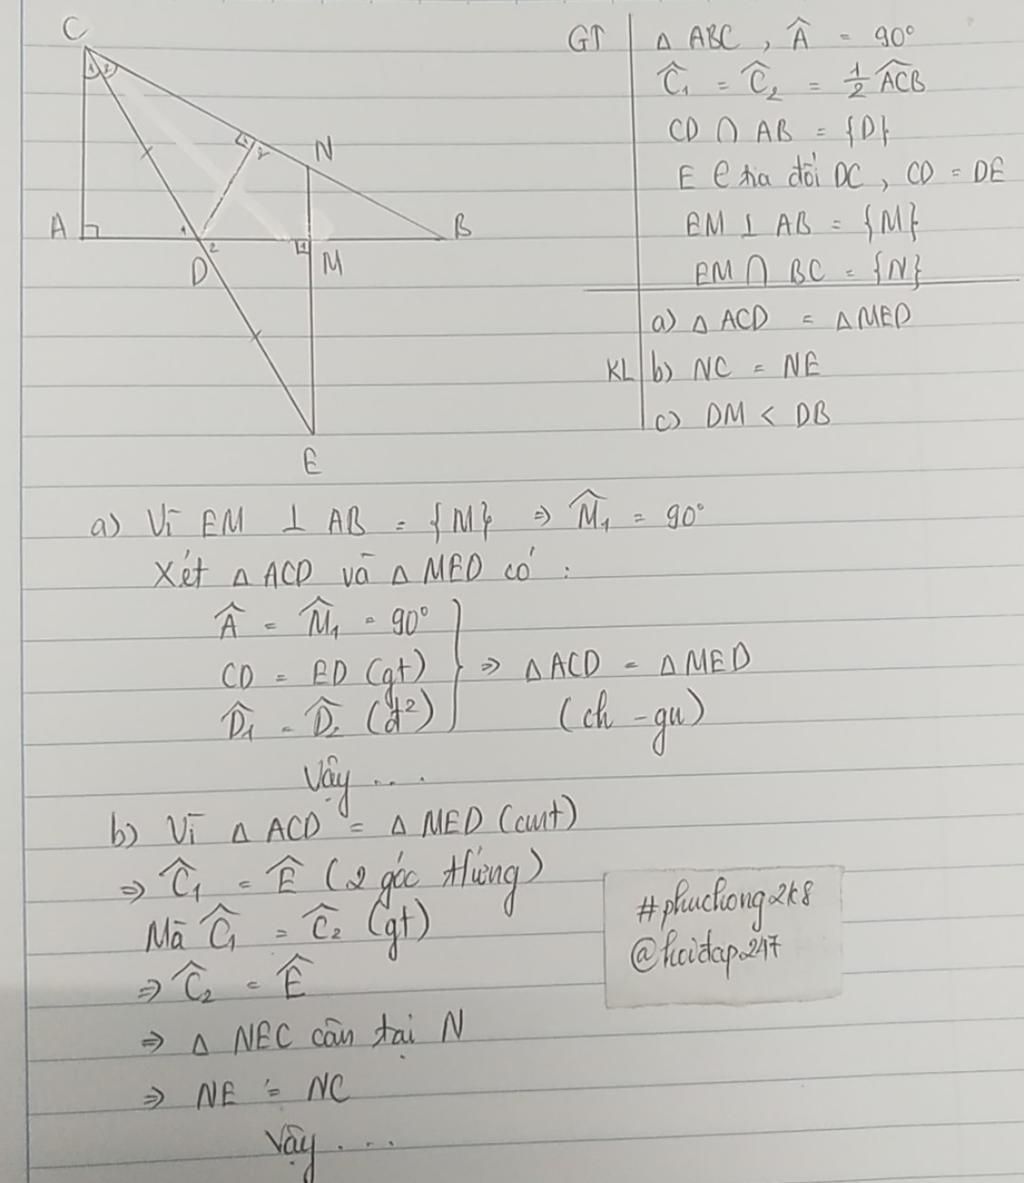 C
1 2
1 2
N
A
1
2
D
1
M
B
E
GT
△ ABC , Â = 90°
Ĉ₁ = Ĉ₂ = ½ ACB̂
CD ∩ AB = {D}
E ∈ tia đối DC , CD = DE
EM ⊥ AB = {M}
EM ∩ BC = {N}
a) △ ACD = △ MED
KL b) NC = NE
c) DM < DB
a) Vì EM ⊥ AB = {M} ⇒ M̂₁ = 90°
Xét △ ACD và △ MED có :
Â = M̂₁ = 90°
CD = ED (gt) ⇒ △ ACD = △ MED
D̂₁ = D̂₂ (đ²) (ch - gn)
Vậy ....
b) Vì △ ACD = △ MED (cmt)
⇒ Ĉ₁ = Ê (2 góc t/ứng)
Mà Ĉ₁ = Ĉ₂ (gt)
⇒ Ĉ₂ = Ê
⇒ △ NEC cân tại N
⇒ NE = NC
Vậy ....
#phuchong2k8
@hoidap247